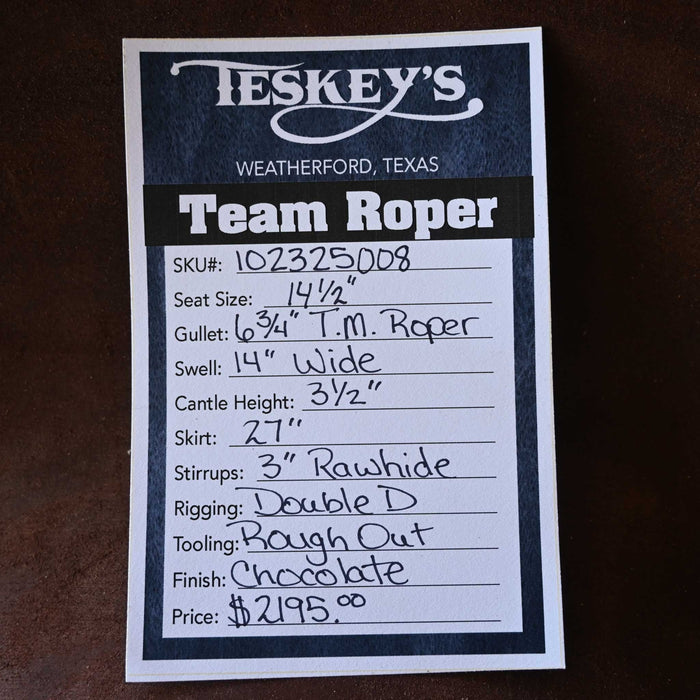 TESKEY'S
WEATHERFORD, TEXAS
Team Roper
SKU#: 102325008
Seat Size: 14 1/2"
Gullet: 6 3/4" T.M. Roper
Swell: 14" Wide
Cantle Height: 3 1/2"
Skirt: 27"
Stirrups: 3" Rawhide
Rigging: Double D
Tooling: Rough Out
Finish: Chocolate
Price: $2195.00